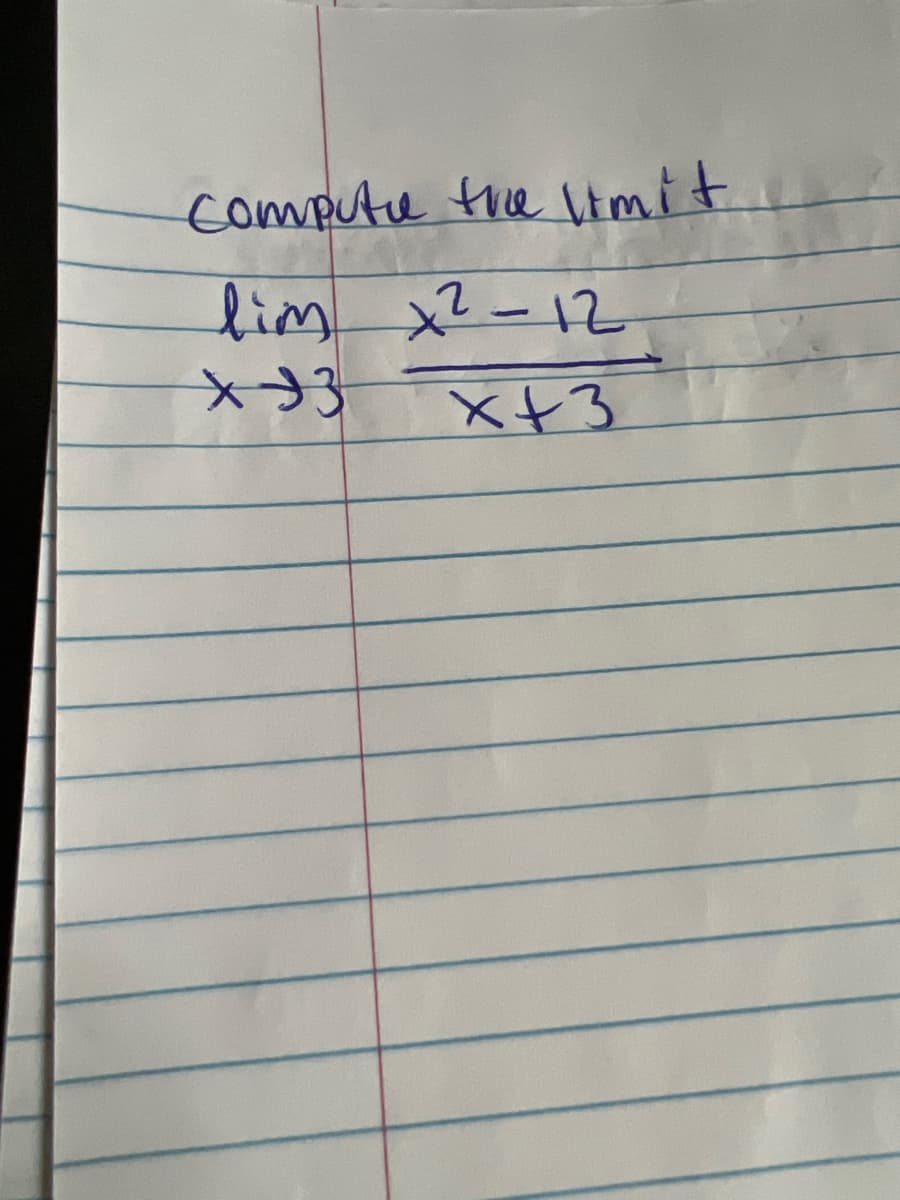 compute the limit
lim x² - 12
x→3 x+3